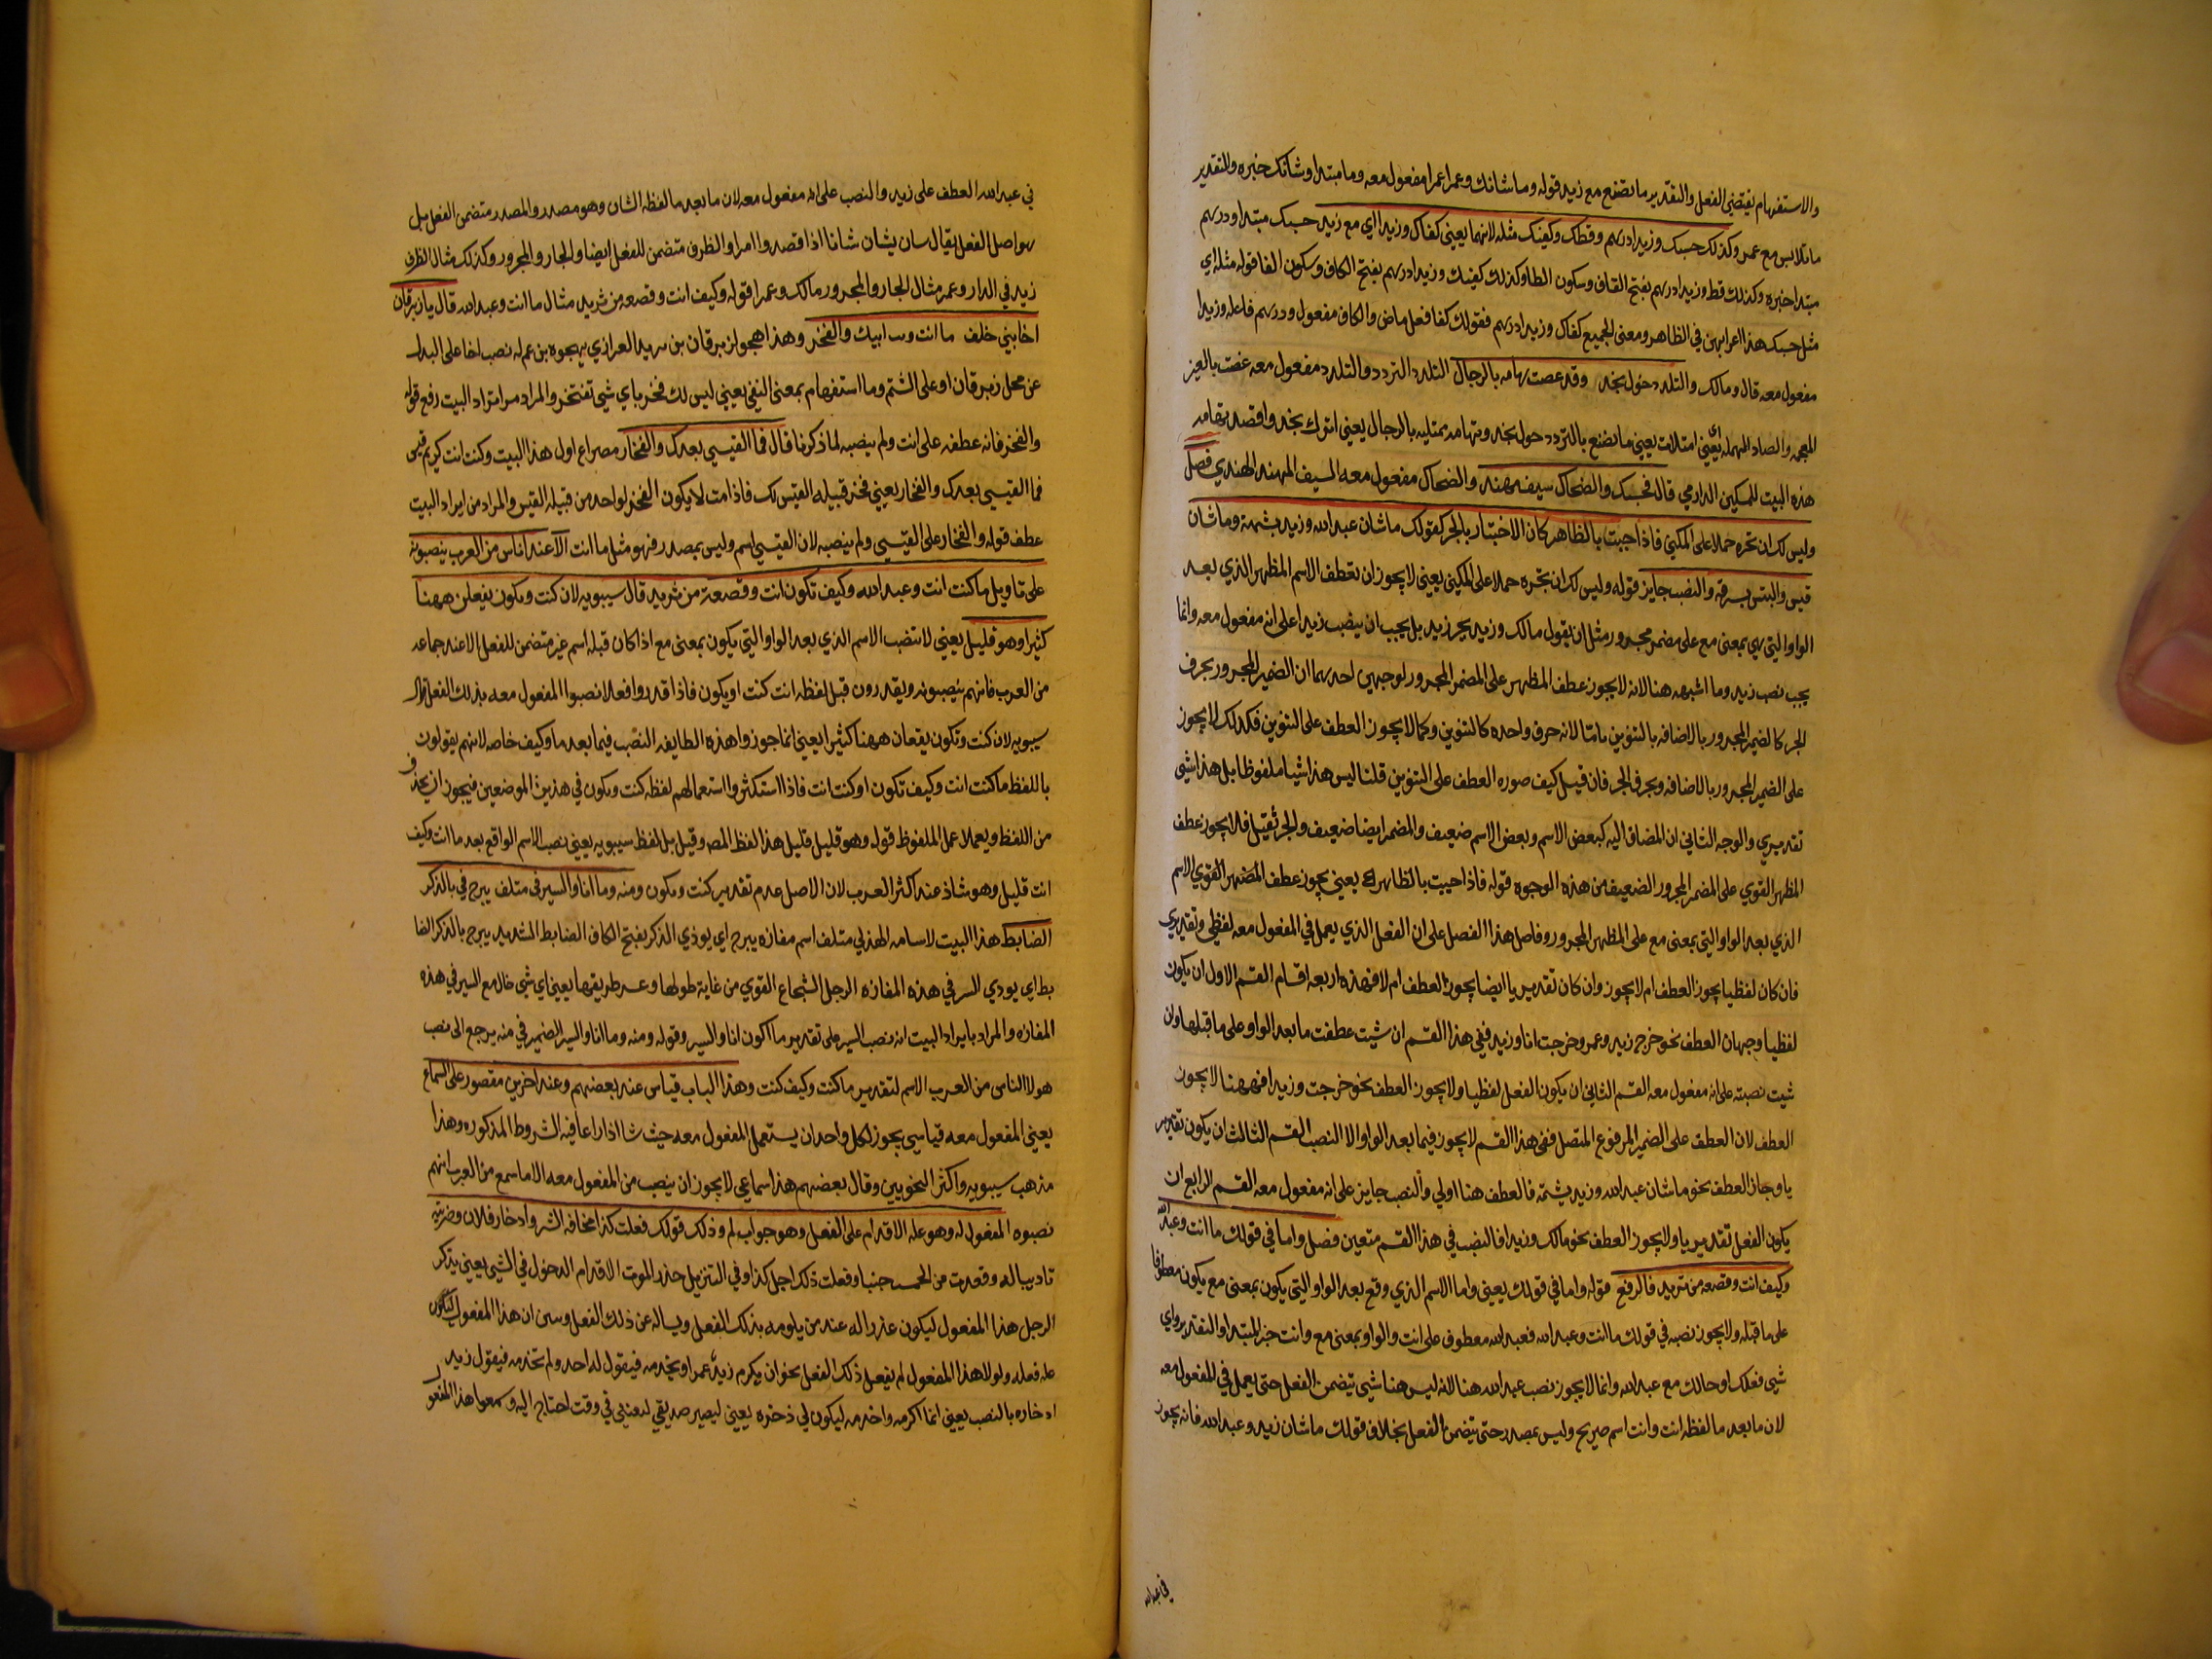 والاستفهام يقتضي الفعل والتقدير ما تصنع مع زيد قوله وما شانك وعمرا عمرا مفعول معه وما مبتدا وشانك خبره والتقدير
ما تلابس مع عمرو وكذلك حسبك وزيدا درهم وقطك وكفيك مثله لانهما يعني كفاك وزيدا اي مع زيد حسبك مبتدا ودرهم
مبتدا خبره وكذلك قط وزيدا درهم بفتح القاف وسكون الطا وكذلك كفيك وزيدا درهم بفتح الكاف وسكون الفا قوله مثله اي
مثل حسبك هذا اعرابهن في الظاهر ومعنى الجميع كفاك وزيدا درهم فقولك كفا فعل ماض والكاف مفعول ودرهم فاعله وزيدا
مفعول معه قال ومالك والتلدد حول نجد وقد غصت تهامه بالرجال التلدد التردد والتلدد مفعول معه غصت بالغين
المعجمه والصاد المهمله يعني امتلات يعني ما تصنع بالتردد حول نجد وتهامه ممتليه بالرجال يعني اترك نجد واقصد تهامه
هذه البيت للمسكين الدارمي قال فحسبك والضحاك سيف مهند والضحاك مفعول معه السيف المهند الهندي فصل
وليس لك ان تجره حملا على المكني فاذا جيت بالظاهر كان الاختيار بالجر كقولك ما شان عبد الله وزيد يشتمه وما شان
قيس والبر يسرقه والنصب جايز قوله وليس لك ان تجره حملا على المكني يعني لا يجوز ان تعطف الاسم المظهر الذي بعد
الواو التي هي بمعنى مع على مضمر مجرور مثل ان يقول مالك وزيد بجر زيد بل يجب ان ينصب زيدا على انه مفعول معه وانما
يجب نصب زيد وما اشبهه هنا لانه لا يجوز عطف المظهر على المضمر المجرور لوجهين احدهما ان الضمير المجرور بحرف
الجر كالضمير المجرور بالاضافه بالتنوين لانه حرف واحده كالتنوين وكما لا يجوز العطف على التنوين فكذلك لا يجوز
على الضمير المجرور بالاضافه وبحرف الجر فان قيل كيف صوره العطف على التنوين قلنا ليس هذا شيا ملفوظا بل هذا شي
تقديري والوجه الثاني ان المضاف اليه كبعض الاسم وبعض الاسم ضعيف والمضمر ايضا ضعيف والجر ثقيل فلا يجوز عطف
المظهر القوي على المضمر المجرور الضعيف من هذه الوجوه قوله فاذا جيت بالظاهر يعني يجوز عطف المظهر القوي الاسم
الذي بعد الواو التي بمعنى مع على المظهر المجرور وفاصل هذا الفصل على ان الفعل الذي يعمل في المفعول معه لفظي وتقديري
فان كان لفظيا يجوز العطف ام لا يجوز وان كان تقديريا ايضا يجوز العطف ام لا فهذه اربعه اقسام القسم الاول ان يكون
لفظيا وجهان العطف نحو خرج زيد وعمرو خرجت انا وزيد ففي هذا القسم ان شيت عطفت ما بعد الواو على ما قبلها وان
شيت نصبته على انه مفعول معه القسم الثاني ان يكون الفعل لفظيا ولا يجوز العطف نحو خرجت وزيدا فههنا لا يجوز
العطف لان العطف على الضمير المرفوع المتصل ففي هذا القسم لا يجوز فيما بعد الواو الا النصب القسم الثالث ان يكون تقدير
يا وجاز العطف نحو ما شان عبد الله وزيد يشتمه فالعطف هنا اولي والنصب جايز على انه مفعول معه القسم الرابع ان
يكون الفعل تقديريا ولا يجوز العطف نحو مالك وزيدا فالنصب في هذا القسم متعين فصل واما في قولك ما انت وعبد الله
وكيف انت وقصعه من ثريد فالرفع قوله واما في قولك يعني واما الاسم الذي وقع بعد الواو التي يكون بمعنى مع يكون معطوفا
على ما قبله ولا يجوز نصبه في قولك ما انت وعبد الله فعبد الله معطوف على انت والواو بمعنى مع وانت خبر المبتدا والتقدير اي
شي فعلك او حالك مع عبد الله وانما لا يجوز نصب عبد الله هنا لانه ليس هنا شي يتضمن الفعل حتى يعمل في المفعول معه
لان ما بعد ما لفظه انت وانت اسم صريح وليس بمصدر حتى يتضمن الفعل بخلاف قولك ما شان زيد وعبد الله فانه يجوز
في عبد الله
في عبد الله العطف على زيد والنصب على انه مفعول معه لان ما بعد ما لفظه الشان وهو مصدر والمصدر متضمن الفعل بل
هو اصل الفعل يقال شان يشان شانا اذا قصد امرا والظرف متضمن للفعل ايضا والجار والمجرور وكذلك مثال الظرف
زيد في الدار وعمر مثال الجار والمجرور مالك وعمرا قوله وكيف انت وقصعه من ثريد مثال ما انت وعبد الله قال يا زبرقان
اخا بني خلف ما انت وب ابيك والفخر وهذا هجو لزبرقان بن العرازي يهجوه بن عم له نصب اخا على البدل
عن محل زبرقان او على الشتم وما استفهام بمعنى النفي يعني ليس لك فخر باي شي تفتخر والمراد من ايراد البيت رفع قوله
والفخر فانه عطفه على انت ولم ينصبه لما ذكرنا قال فما القيسي بعدك والفخار مصراع اول هذا البيت وكنت انت كريم قيس
فما القيسي بعدك والفخار يعني فخر قبيله القيس لك فاذا مت لا يكون الفخر لواحد من قبيله القيس والمراد من ايراد البيت
عطف قوله والفخار على القيسي ولم ينصبه لان القيسي اسم وليس بمصدر فهو مثل ما انت الا عند اناس من العرب ينصبونه
على تاويل ما كنت انت وعبد الله وكيف تكون انت وقصعة من ثريد قال سيبويه لان كنت وتكون يقعان ههنا
كثيرا وهو قليل يعني لا تنصب الاسم الذي بعد الواو التي يكون بمعنى مع اذا كان قبله اسم غير متضمن للفعل الا عند جماعه
من العرب فانهم ينصبونه ويقدرون قبل لفظه انت كنت او يكون فاذا قدروا فعلا نصبوا المفعول معه بذلك الفعل قال
سيبويه لان كنت وتكون يقعان ههنا كثيرا يعني انما جوزوا هذه الطايفه النصب فيما بعد ما وكيف خاصه لانهم يقولون
باللفظ ما كنت انت وكيف تكون او كنت انت فاذا استكثروا استعمالهم لفظه كنت وتكون في هذين الموضعين فيجوز ان يحذف
من اللفظ ويعمل عمل الملفوظ قوله وهو قليل قليل هذا لفظ المص وقيل بل لفظ سيبويه يعني نصب الاسم الواقع بعد ما انت وكيف
انت قليل وهو شاذ عند اكثر العرب لان الاصل عدم تقدير كنت وتكون ومنه وما انا والسير في متلف يبرح في بالذكر
الضابط هذا البيت لاسامه الهذلي متلف اسم مفازه يبرح اي يوذي الذكر بفتح الكاف الضابط الشديد يبرح بالذكر الضا
بط اي يوذي السير في هذه المفازه الرجل الشجاع القوي من غاية طولها وعسر طريقها يعني اي شي حال مع السير في هذه
المفازه والمراد بايراد البيت انه نصب السير على تقدير ما اكون انا والسير وقوله ومنه وما انا والسير الضمير في منه يرجع الى نصب
هولا الناس من العرب الاسم لتقدير ما كنت وكيف كنت وهذا الباب قياس عند بعضهم وعند اخرين مقصور على السماع
يعني المفعول معه قياسي يجوز لكل واحد ان يستعمل المفعول معه حيث شا اذا راعا فيه الشروط المذكوره وهذا
مذهب سيبويه واكثر النحويين وقال بعضهم هذا سماعي لا يجوز ان ينصب من المفعول معه الا ما سمع من العرب انهم
نصبوه المفعول له وهو عله الاقدام على الفعل وهو جواب لم وذلك قولك فعلت كذا مخافه الشر وادخار فلان وضربته
تاديبا له وقعدت من الحرب جبنا وفعلت ذلك اجل كذا وفي التنزيل حذر الموت الاقدام الدخول في الشي يعني يذكر
الرجل هذا المفعول ليكون عذرا له عند من يلومه بذلك الفعل ويساله عن ذلك الفعل ان هذا المفعول ليكون
عله فعله ولولا هذا المفعول لم يفعل ذلك الفعل نحو ان يكرم زيد عمرا ويخدمه فيقول له احد ولم تخدمه فيقول زيد
ادخاره بالنصب يعني انما اكرمه واخدمه ليكون لي ذخره يعني ليصير صديقي في وقت احتاج اليه هذا المفعو